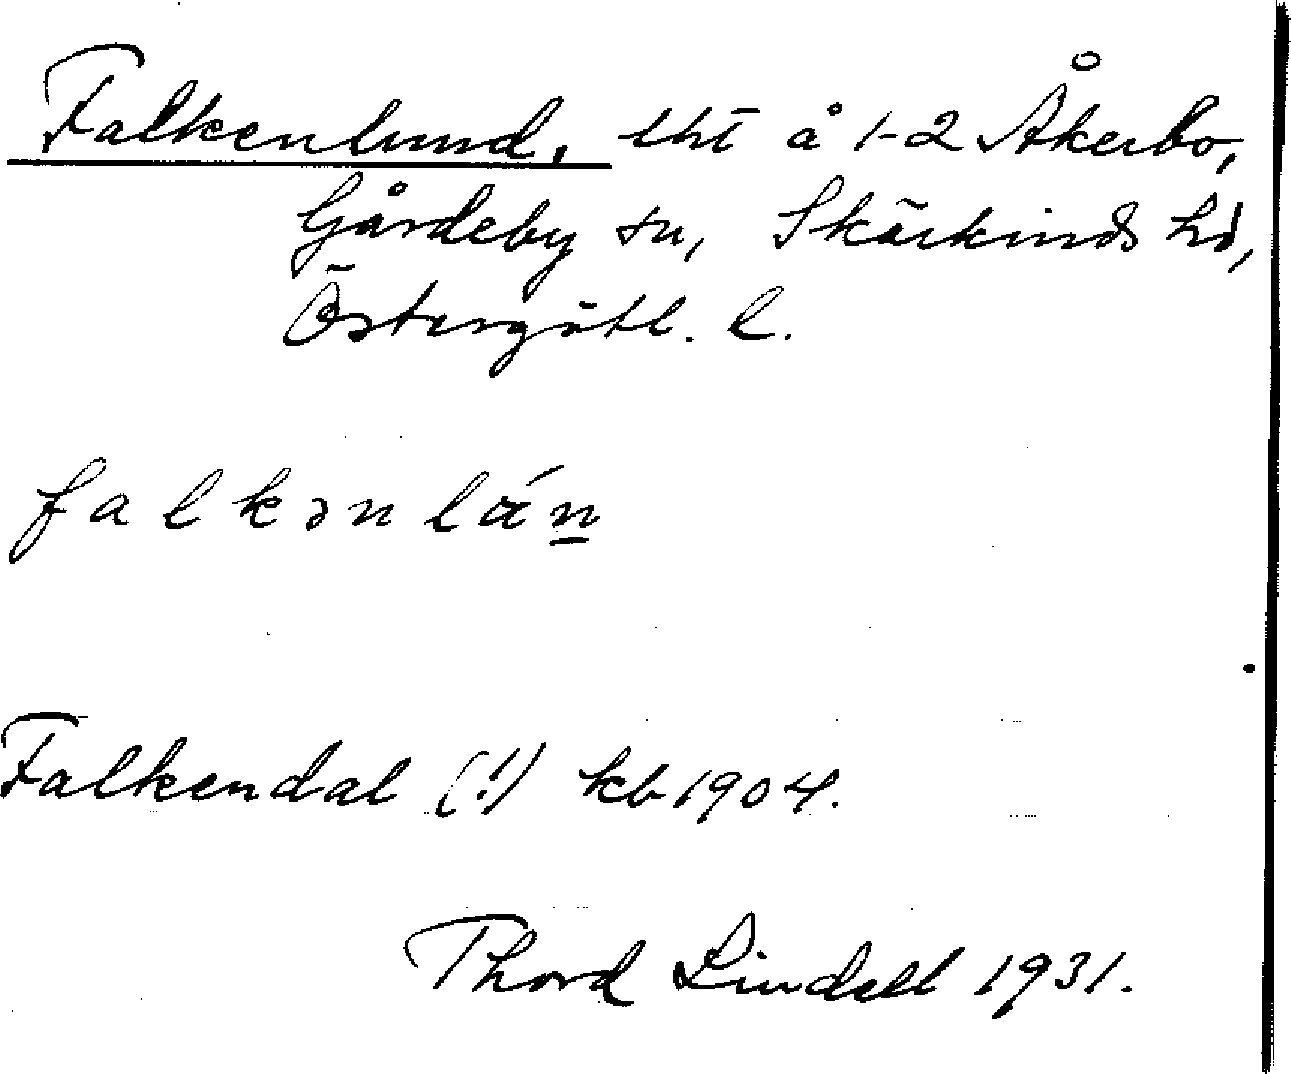 Falkenlund, lht å 1-2 Åkerbo,
Gårdeby sn, Skärkinds hd,
Östergötl. l.
falkən
Falkendal (!) kb 1904.
Thord Lindell 1931.